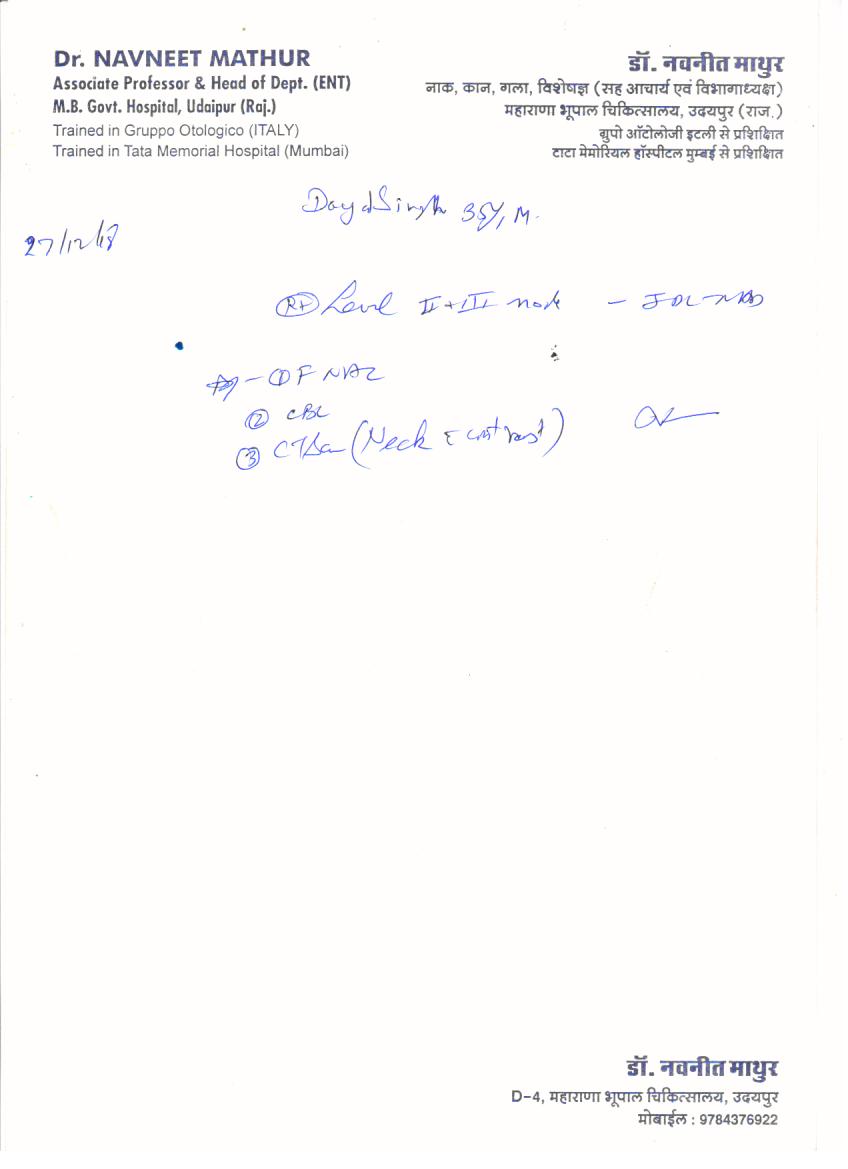 Dr. NAVNEET MATHUR
Associate Professor & Head of Dept. (ENT)
M.B. Govt. Hospital, Udaipur (Raj.)
Trained in Gruppo Otologico (ITALY)
Trained in Tata Memorial Hospital (Mumbai)
डॉ. नवनीत माथुर
नाक, कान, गला, विशेषज्ञ (सह आचार्य एवं विभागाध्यक्ष)
महाराणा भूपाल चिकित्सालय, उदयपुर (राज.)
ग्रुपो ऑटोलोजी इटली से प्रशिक्षित
टाटा मेमोरियल हॉस्पीटल मुम्बई से प्रशिक्षित
Daya Singh 35Y, M.
27/12/18
Rt Level II + III node - IDL - NAD
① FNAC
② CBC
③ CT Scan (Neck c contrast)
डॉ. नवनीत माथुर
D-4, महाराणा भूपाल चिकित्सालय, उदयपुर
मोबाईल : 9784376922